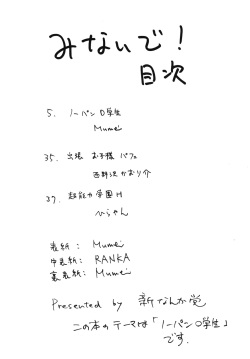 みないで！
目次
5. ノーパン〇学生
Mumei
35. 出張 お子様 パフェ
西野沢 かおり介
37. 超能力学園H
へいちゃん
表紙： Mumei
中表紙： RANKA
裏表紙： Mumei
Presented by 新なんか党
この本のテーマは「ノーパン〇学生」
です．